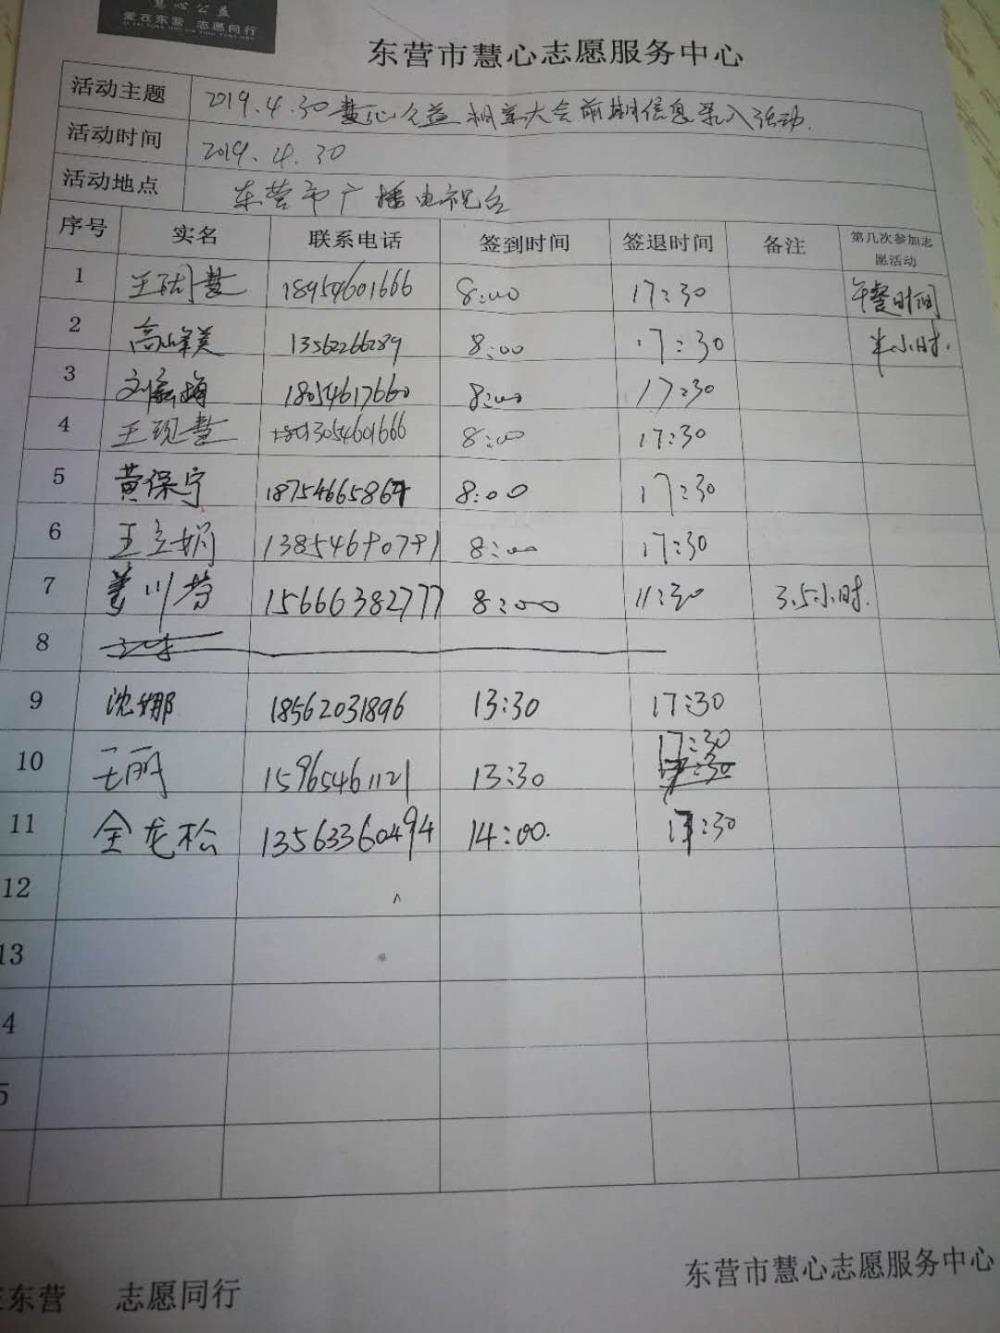 慧心公益
爱在东营 志愿同行
东营市慧心志愿服务中心
活动主题 2019.4.30慧心公益相亲大会前期信息录入活动.
活动时间 2019.4.30
活动地点 东营市广播电视台
序号 实名 联系电话 签到时间 签退时间 备注 第几次参加志愿活动
1 18954601666 8:00 17:30 午餐时间
2 高峰美 13562266289 8:00 17:30 半小时.
3 18054617660 8:00 17:30
4 王现慧 8:00 17:30
5 黄保宁 18754665867 8:00 17:30
6 王立娟 8:00 17:30
7 姜川芳 15666382777 8:00 11:30 3.5小时.
8
9 沈娜 18562031896 13:30 17:30
10 王丽 15965461121 13:30 17:30 17:30
11 全龙松 13563360494 14:00. 17:30
12
13
4
5
东营 志愿同行
东营市慧心志愿服务中心